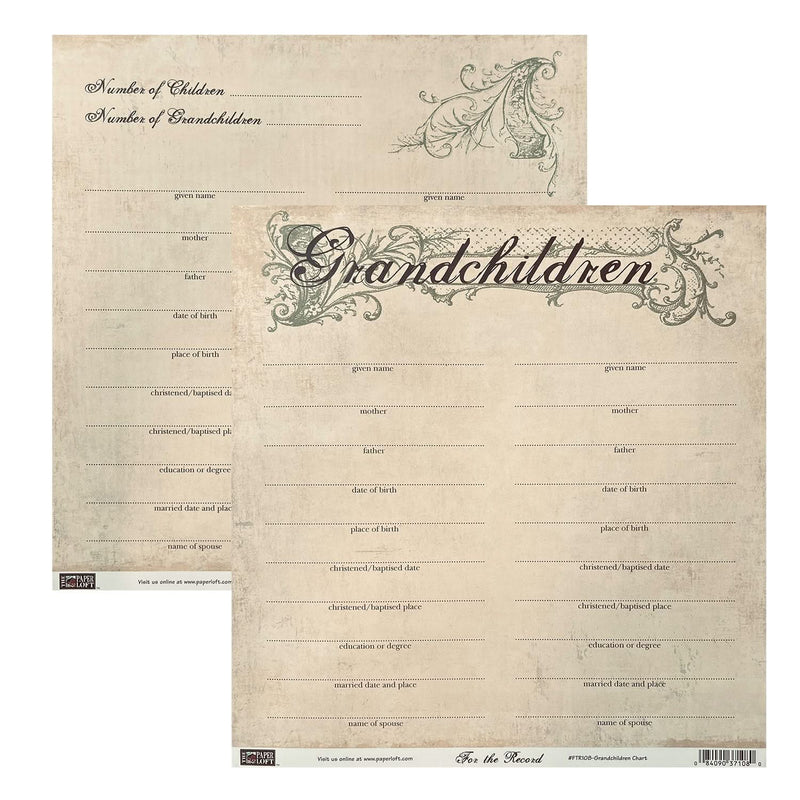 Number of Children
Number of Grandchildren
given name
given name
mother
father
date of birth
place of birth
christened/baptised
christened/baptised
education or degree
married date and place
name of spouse
THE PAPER LOFT
Visit us online at www.paperloft.com
Grandchildren
given name
given name
mother
mother
father
father
date of birth
date of birth
place of birth
place of birth
christened/baptised date
christened/baptised date
christened/baptised place
christened/baptised place
education or degree
education or degree
married date and place
married date and place
name of spouse
name of spouse
THE PAPER LOFT
Visit us online at www.paperloft.com
For the Record
#FTR10B-Grandchildren Chart
0 84090 37108 0